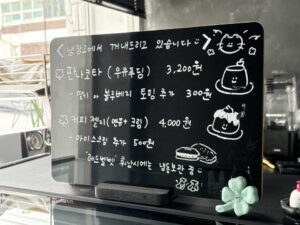 < 냉장고에서 꺼내드리고 있습니다 >
판나코타 (우유푸딩) 3,200원
딸기 or 블루베리 토핑 추가 300원
커피 젤리 (연유+크림) 4,000원
- 아이스크림 추가 500원
"레드벨벳" 휘낭시에는 냉동보관 중